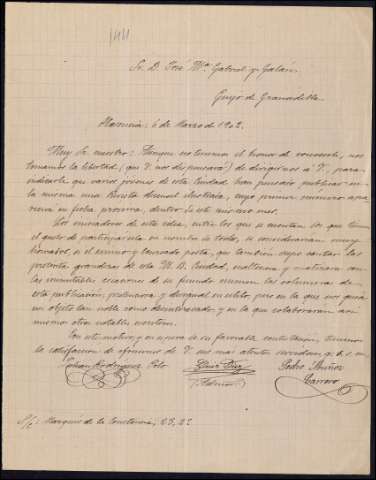 Sr. D. José Mª Gabriel y Galán.
Guijo de Granadilla.
Plasencia: 6 de Marzo de 1902.
Muy Sr. nuestro: Aunque no tenemos el honor de conocerle, nos
tomamos la libertad (que V. nos dispensará) de dirigirnos á V., para
indicarle que varios jóvenes de esta Ciudad han pensado publicar en
la misma una Revista ilustrada, cuyo primer número apa-
recerá en fecha próxima, dentro de este mismo mes.
Los iniciadores de esta idea, entre los que se cuentan los que tienen
el gusto de participársela en nombre de todos, se considerarían muy
honrados, si el eximio y laureado poeta, que también supo cantar las
grandezas de esta M. N. Ciudad,
con las de su fecunda las columnas de
esta publicación, en estilo, pero en la que nos guía
un objeto tan noble como desinteresado y en la que colaborarán así
mismo otros notables escritores.
Con este motivo y en espera de su favorable contestación, tienen
la satisfacción de ofrecerse de V. sus más atentos servidores q. b. s. m.
Julian Rodríguez Polo
Pedro Muñoz
S/c: Marqués de la Constancia, 23, 2º